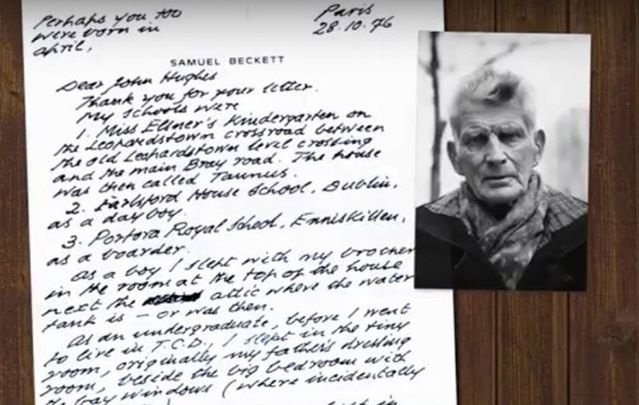 Perhaps you too
were born in
April.
Paris
28.10.76
SAMUEL BECKETT
Dear John Hughes
Thank you for your letter.
My schools were
1. Miss Elsner's Kindergarten on
the Leopardstown crossroad between
the old Leopardstown level crossing
and the main Bray road. The house
was then called Taunus.
2. Earlsford House School, Dublin,
as a day boy.
3. Portora Royal School, Enniskillen,
as a boarder.
As a boy I slept with my brother
in the room at the top of the house
next the attic where the water
tank is – or was then.
As an undergraduate, before I went
to live in T.C.D., I slept in the tiny
room, originally my father's dressing
room, beside the big bedroom with
bay windows (where incidentally